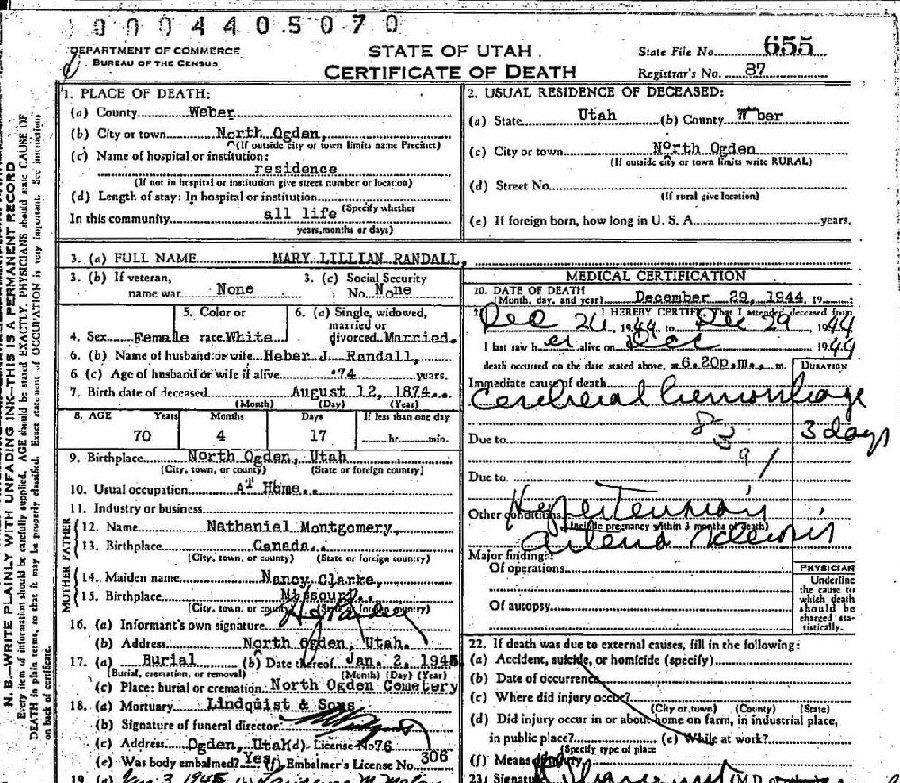 0004405070
DEPARTMENT OF COMMERCE
BUREAU OF THE CENSUS
STATE OF UTAH
CERTIFICATE OF DEATH
State File No. 655
Registrar's No. 87
N. B.—WRITE PLAINLY WITH UNFADING INK—THIS IS A PERMANENT RECORD
Every item of information should be carefully supplied. AGE should be stated EXACTLY. PHYSICIANS should state CAUSE OF
DEATH in plain terms, so that it may be properly classified. Exact statement of OCCUPATION is very important. See instructions
on back of certificate.
1. PLACE OF DEATH:
(a) County Weber
(b) City or town North Ogden,
(If outside city or town limits name Precinct)
(c) Name of hospital or institution:
residence
(If not in hospital or institution give street number or location)
(d) Length of stay: In hospital or institution
(Specify whether
In this community all life
years, months or days)
2. USUAL RESIDENCE OF DECEASED:
(a) State Utah (b) County W ber
(c) City or town North Ogden
(If outside city or town limits write RURAL)
(d) Street No.
(If rural give location)
(e) If foreign born, how long in U. S. A. years.
3. (a) FULL NAME MARY LILLIAN RANDALL,
3. (b) If veteran,
name war None
3. (c) Social Security
No. None
4. Sex Female
5. Color or
race White
6. (a) Single, widowed,
married or
divorced Married.
6. (b) Name of husband or wife Heber J. Randall,
6 (c) Age of husband or wife if alive 74 years.
7. Birth date of deceased August 12, 1874..
(Month) (Day) (Year)
8. AGE Years Months Days If less than one day
70 4 17 hr. min.
9. Birthplace North Ogden, Utah
(City, town, or county) (State or foreign country)
10. Usual occupation AT Home..
11. Industry or business
FATHER
12. Name Nathaniel Montgomery,
13. Birthplace Canada..
(City, town, or county) (State or foreign country)
MOTHER
14. Maiden name Nancy Clarke,
15. Birthplace Missouri..
(City, town, or county) (State or foreign country)
16. (a) Informant's own signature
(b) Address North Ogden, Utah.
17. (a) Burial (b) Date thereof Jan. 2, 1945
(Burial, cremation, or removal) (Month) (Day) (Year)
(c) Place: burial or cremation North Ogden Cemetery
18. (a) Mortuary Lindquist & Sons
(b) Signature of funeral director
(c) Address Ogden, Utah (d) License No 76
(e) Was body embalmed? Yes (f) Embalmer's License No. 306
19. (a) Jan 3 1945 (b)
MEDICAL CERTIFICATION
20. DATE OF DEATH
(Month, day, and year) December 29, 1944 19
21. I HEREBY CERTIFY That I attended deceased from
Dec 26 1944 to Dec 29 1944
I last saw her alive on Dec 1944
death occurred on the date stated above, at 6.20p.m. m.
DURATION
Immediate cause of death
Cerebral hemorrhage
3 days
Due to
83
91
Due to
Other conditions Hypertension
(Include pregnancy within 3 months of death)
Major findings:
Of operations
Of autopsy
PHYSICIAN
Underline
the cause to
which death
should be
charged sta-
tistically.
22. If death was due to external causes, fill in the following:
(a) Accident, suicide, or homicide (specify)
(b) Date of occurrence
(c) Where did injury occur?
(City or town) (County) (State)
(d) Did injury occur in or about home on farm, in industrial place,
in public place? (e) While at work?
(Specify type of place
(f) Means of injury
23. Signature (M.D. or